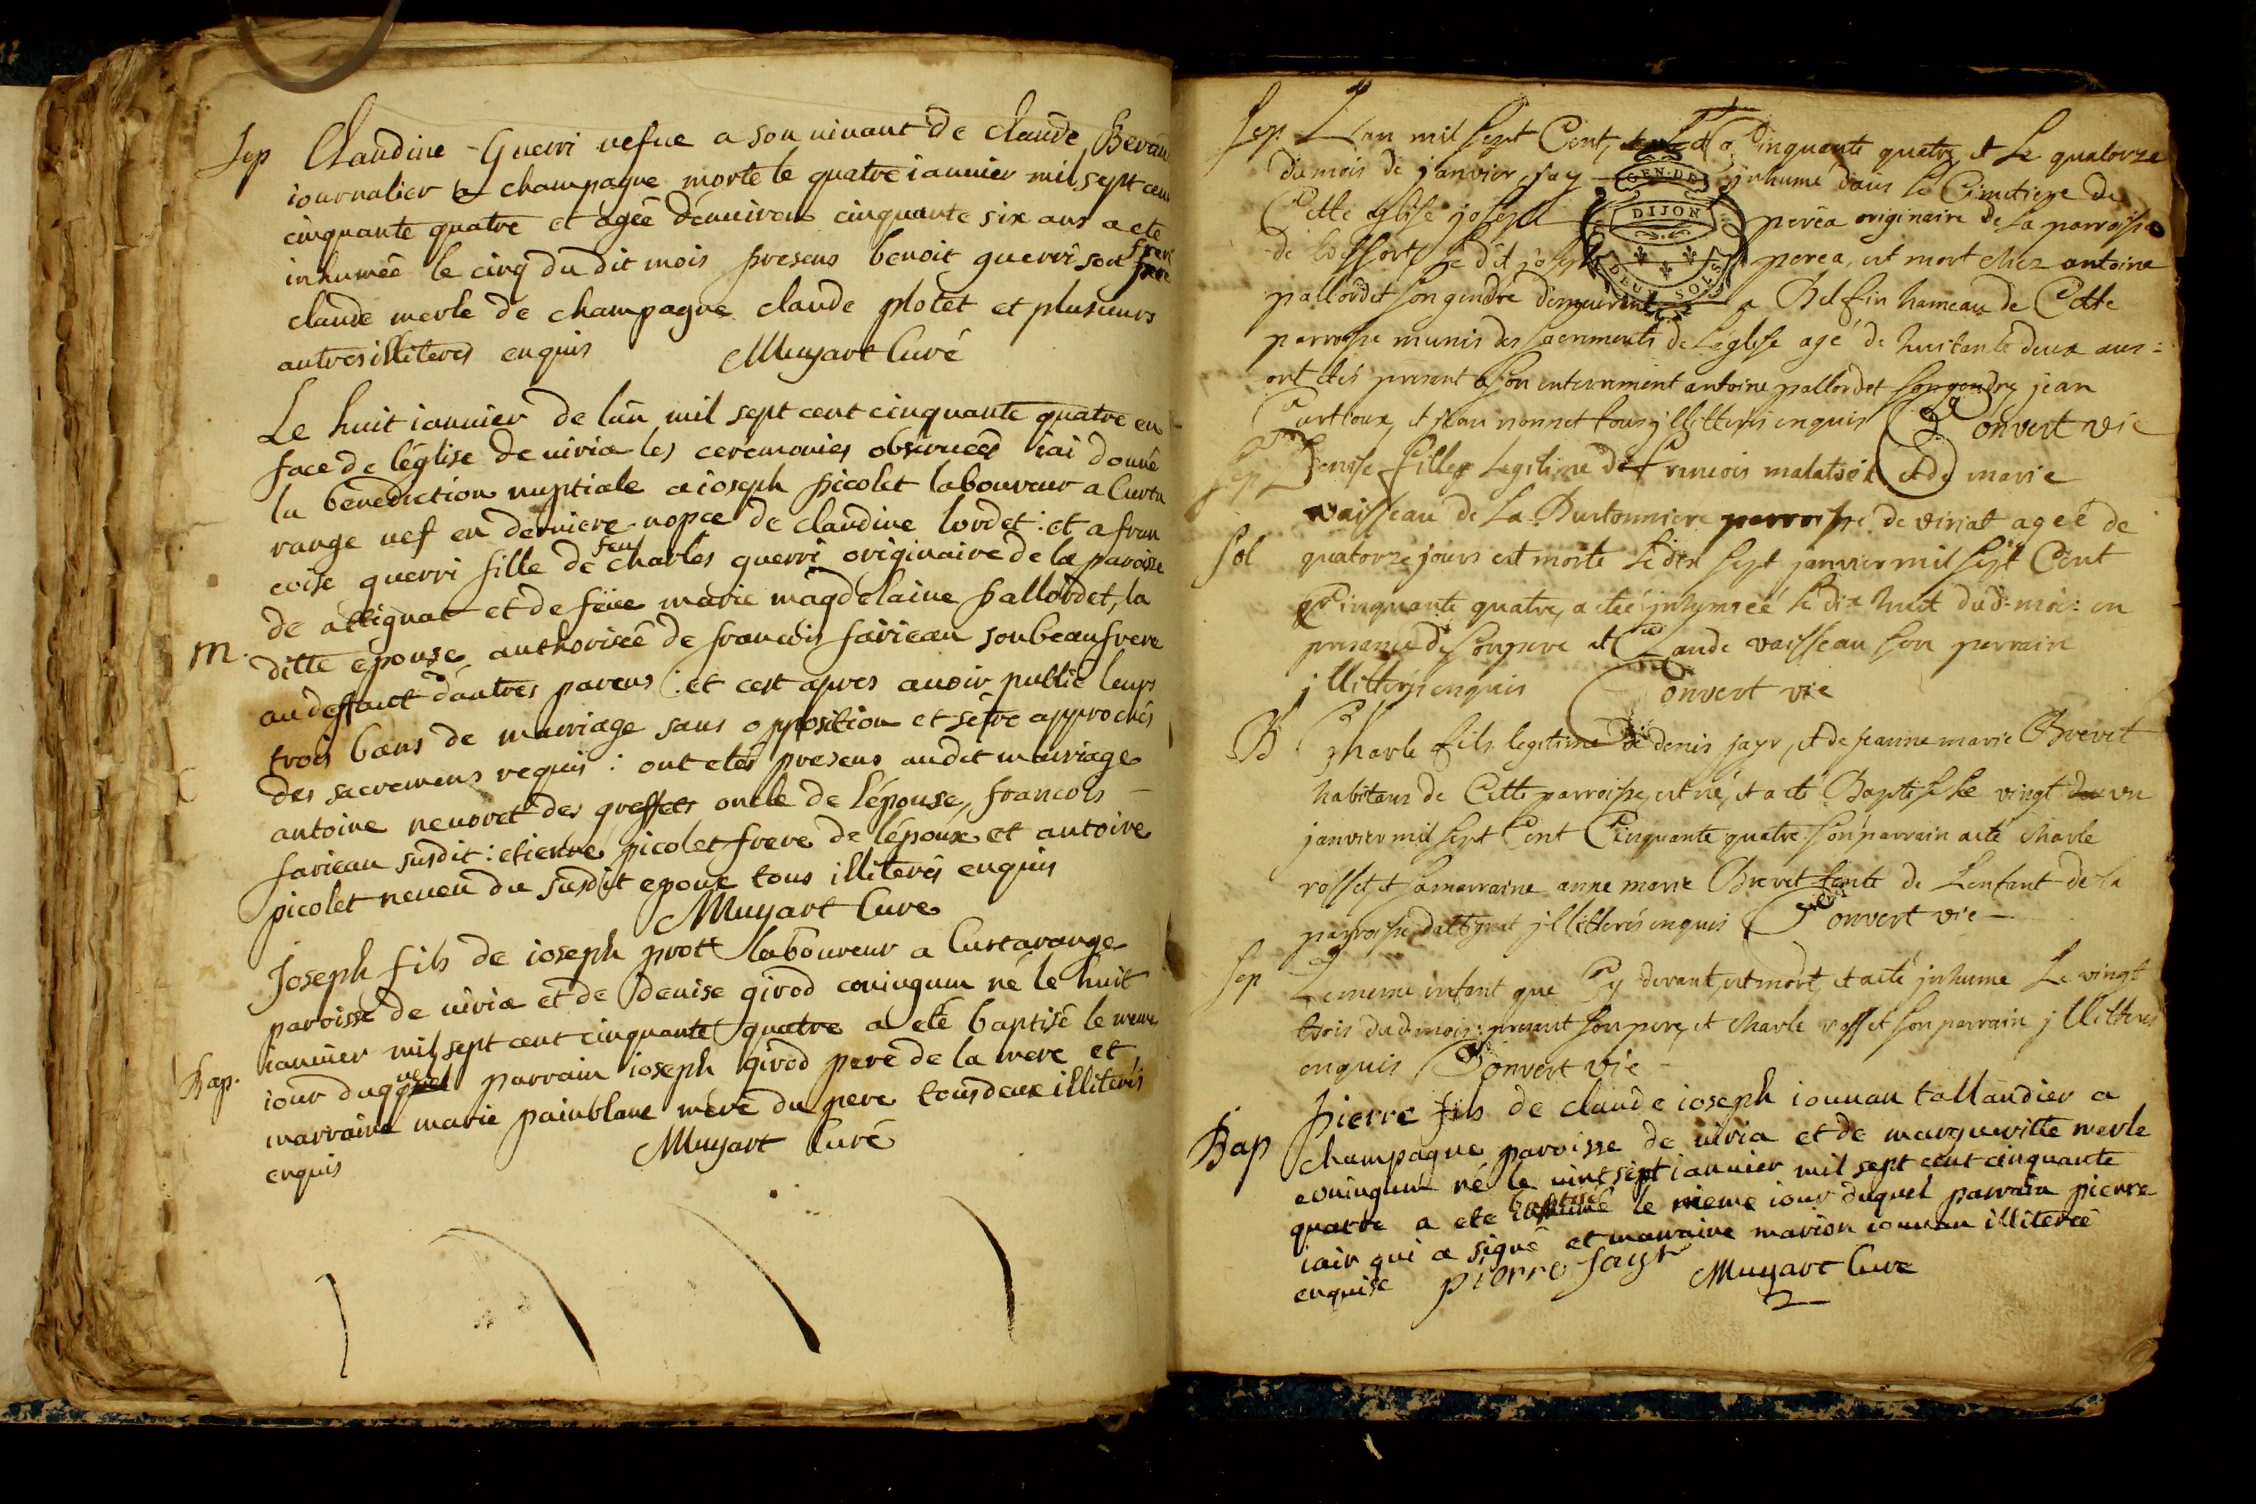 Sep Claudine Guerri vefue a son uiuant de claude Beraud
iournalier a champagne morte le quatre ianuier mil sept cent
cinquante quatre et agée dénuiron cinquante six ans a eté
inhumée le cinq du dit mois presens benoit guerri son frere
claude merle de champagne claude plotet et plusieurs
autres illiteres enquis Muyart Curé
Le huit ianuier de lan mil sept cent cinquante quatre en
face de léglise de uiria les ceremonies obseruées iai donné
la benediction nuptiale a ioseph picolet laboureur a Curta
range uef en derniere nopce de claudine lordet : et a fran
coise guerri fille de feu charles guerri originaire de la paroisse
de attignat et de feue marie magdelaine pallordet, la
M. ditte epouse authorisée de francois farieau son beaufrere
au deffaut dautres parens : et cest apres auoir publié leurs
trois bans de marriage sans opposition et sétre approchés
des sacremens requis : ont etés presens audit marriage
antoine neuoret des greffets oncle de lépouse, francois
farieau susdit : etienne picolet frere de lépoux et antoine
picolet neueu du susdit epoux tous illiterés enquis
Muyart Cure
Joseph fils de ioseph prott laboureur a Curtarange
paroisse de uiria et de denise girod coniugum né le huit
ianuier mil sept cent cinquante quatre a eté baptisé le meme
Bap. iour duquel parrain ioseph girod pere de la mere et
marraine marie painblanc mére du pere tous deux illiterés
enquis Muyart Curé
Sep Lan mil sept Cent, Cinquante quatre et Le quatorze
du mois de janvier, jay inhumé dans le Cimetiere de
GEN. DE
Cette eglise joseph perea originaire de la parroisse
DIJON
de le dit joseph perea, est mort chez antoine
DEUX SOLS
pallordet son gendre demeurant a Bel fin hameau de Cette
parroisse munis des sacrements de Léglise agé de huitante deux ans :
ont étés present a son enterrement antoine pallordet son gendre, jean
Curtioux, et jean nonnet tous jllitterés enquis Convert vie
Sep Denise fille Legitime de francois malatier et de marie
vaisseau de La Burtonniere parroisse de viriat ageé de
sol quatorze jours est morte le dix sept janvier mil sept Cent
Cinquante quatre, a eteé jnhumeé le dix huit dud. mois : en
presance de son pere et Claude vaisseau son parrain
jllitterés enquis Convert vie
B Charle fils legitime de denis jayr, et de jeanne marie Brevet
habitans de Cette parroisse, est né, et a eté Baptisé le vingt un
janvier mil sept Cent Cinquante quatre son parrain a eté Charle
rosset, et sa marraine anne marie Brevet tente de Lenfant de la
parroisse dattignat jllitterés enquis Convert vie
Sep Le meme enfant que Cy devant, est mort, et a eté jnhume Le vingt
trois dud. mois : present son pere, et Charle rosset son parrain jllitterés
enquis Convert vie
pierre fils de claude ioseph iounan tallandier a
Bap champagne paroisse de uiria et de margueritte merle
coniugum né le uint sept ianuier mil sept cent cinquante
quatre a ete baptisé le meme iour duquel parrain pierre
iair qui a signé et marraine marion iounan illiterée
enquise pierre Jayr Muyart Cure